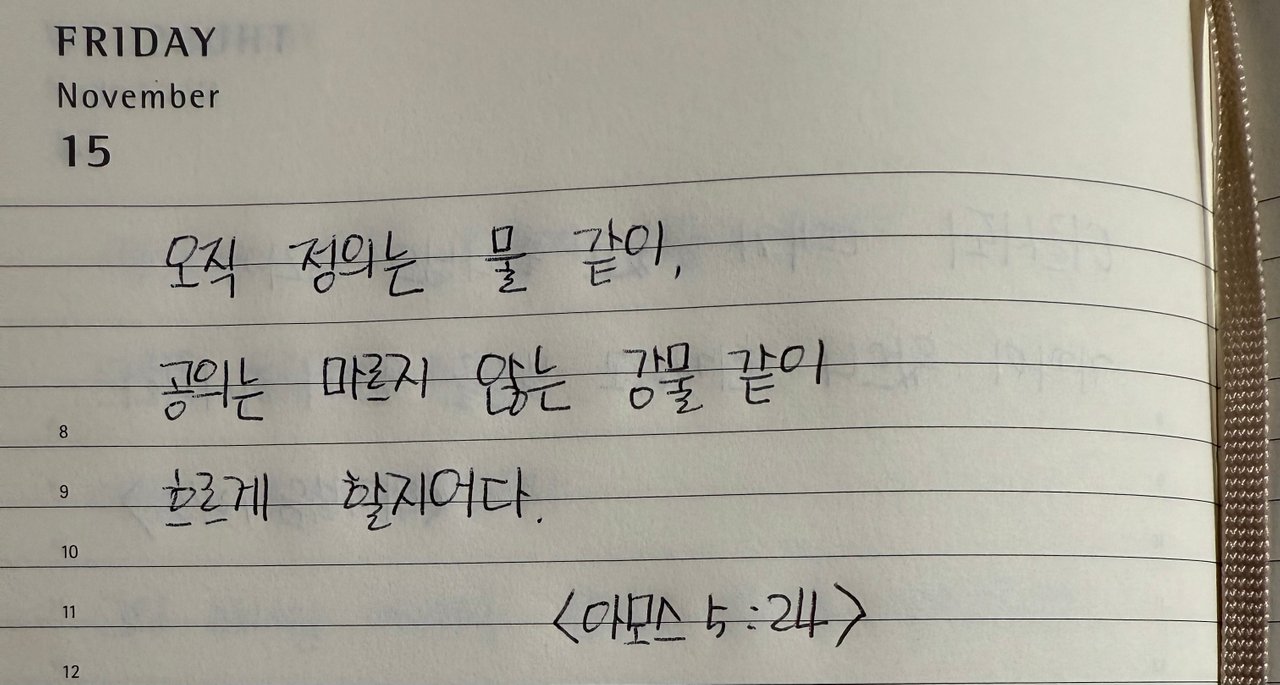 FRIDAY
November
15
오직 정의는 물 같이,
공의는 마르지 않는 강물 같이
8
흐르게 할지어다.
9
10
<아모스 5:24>
11
12